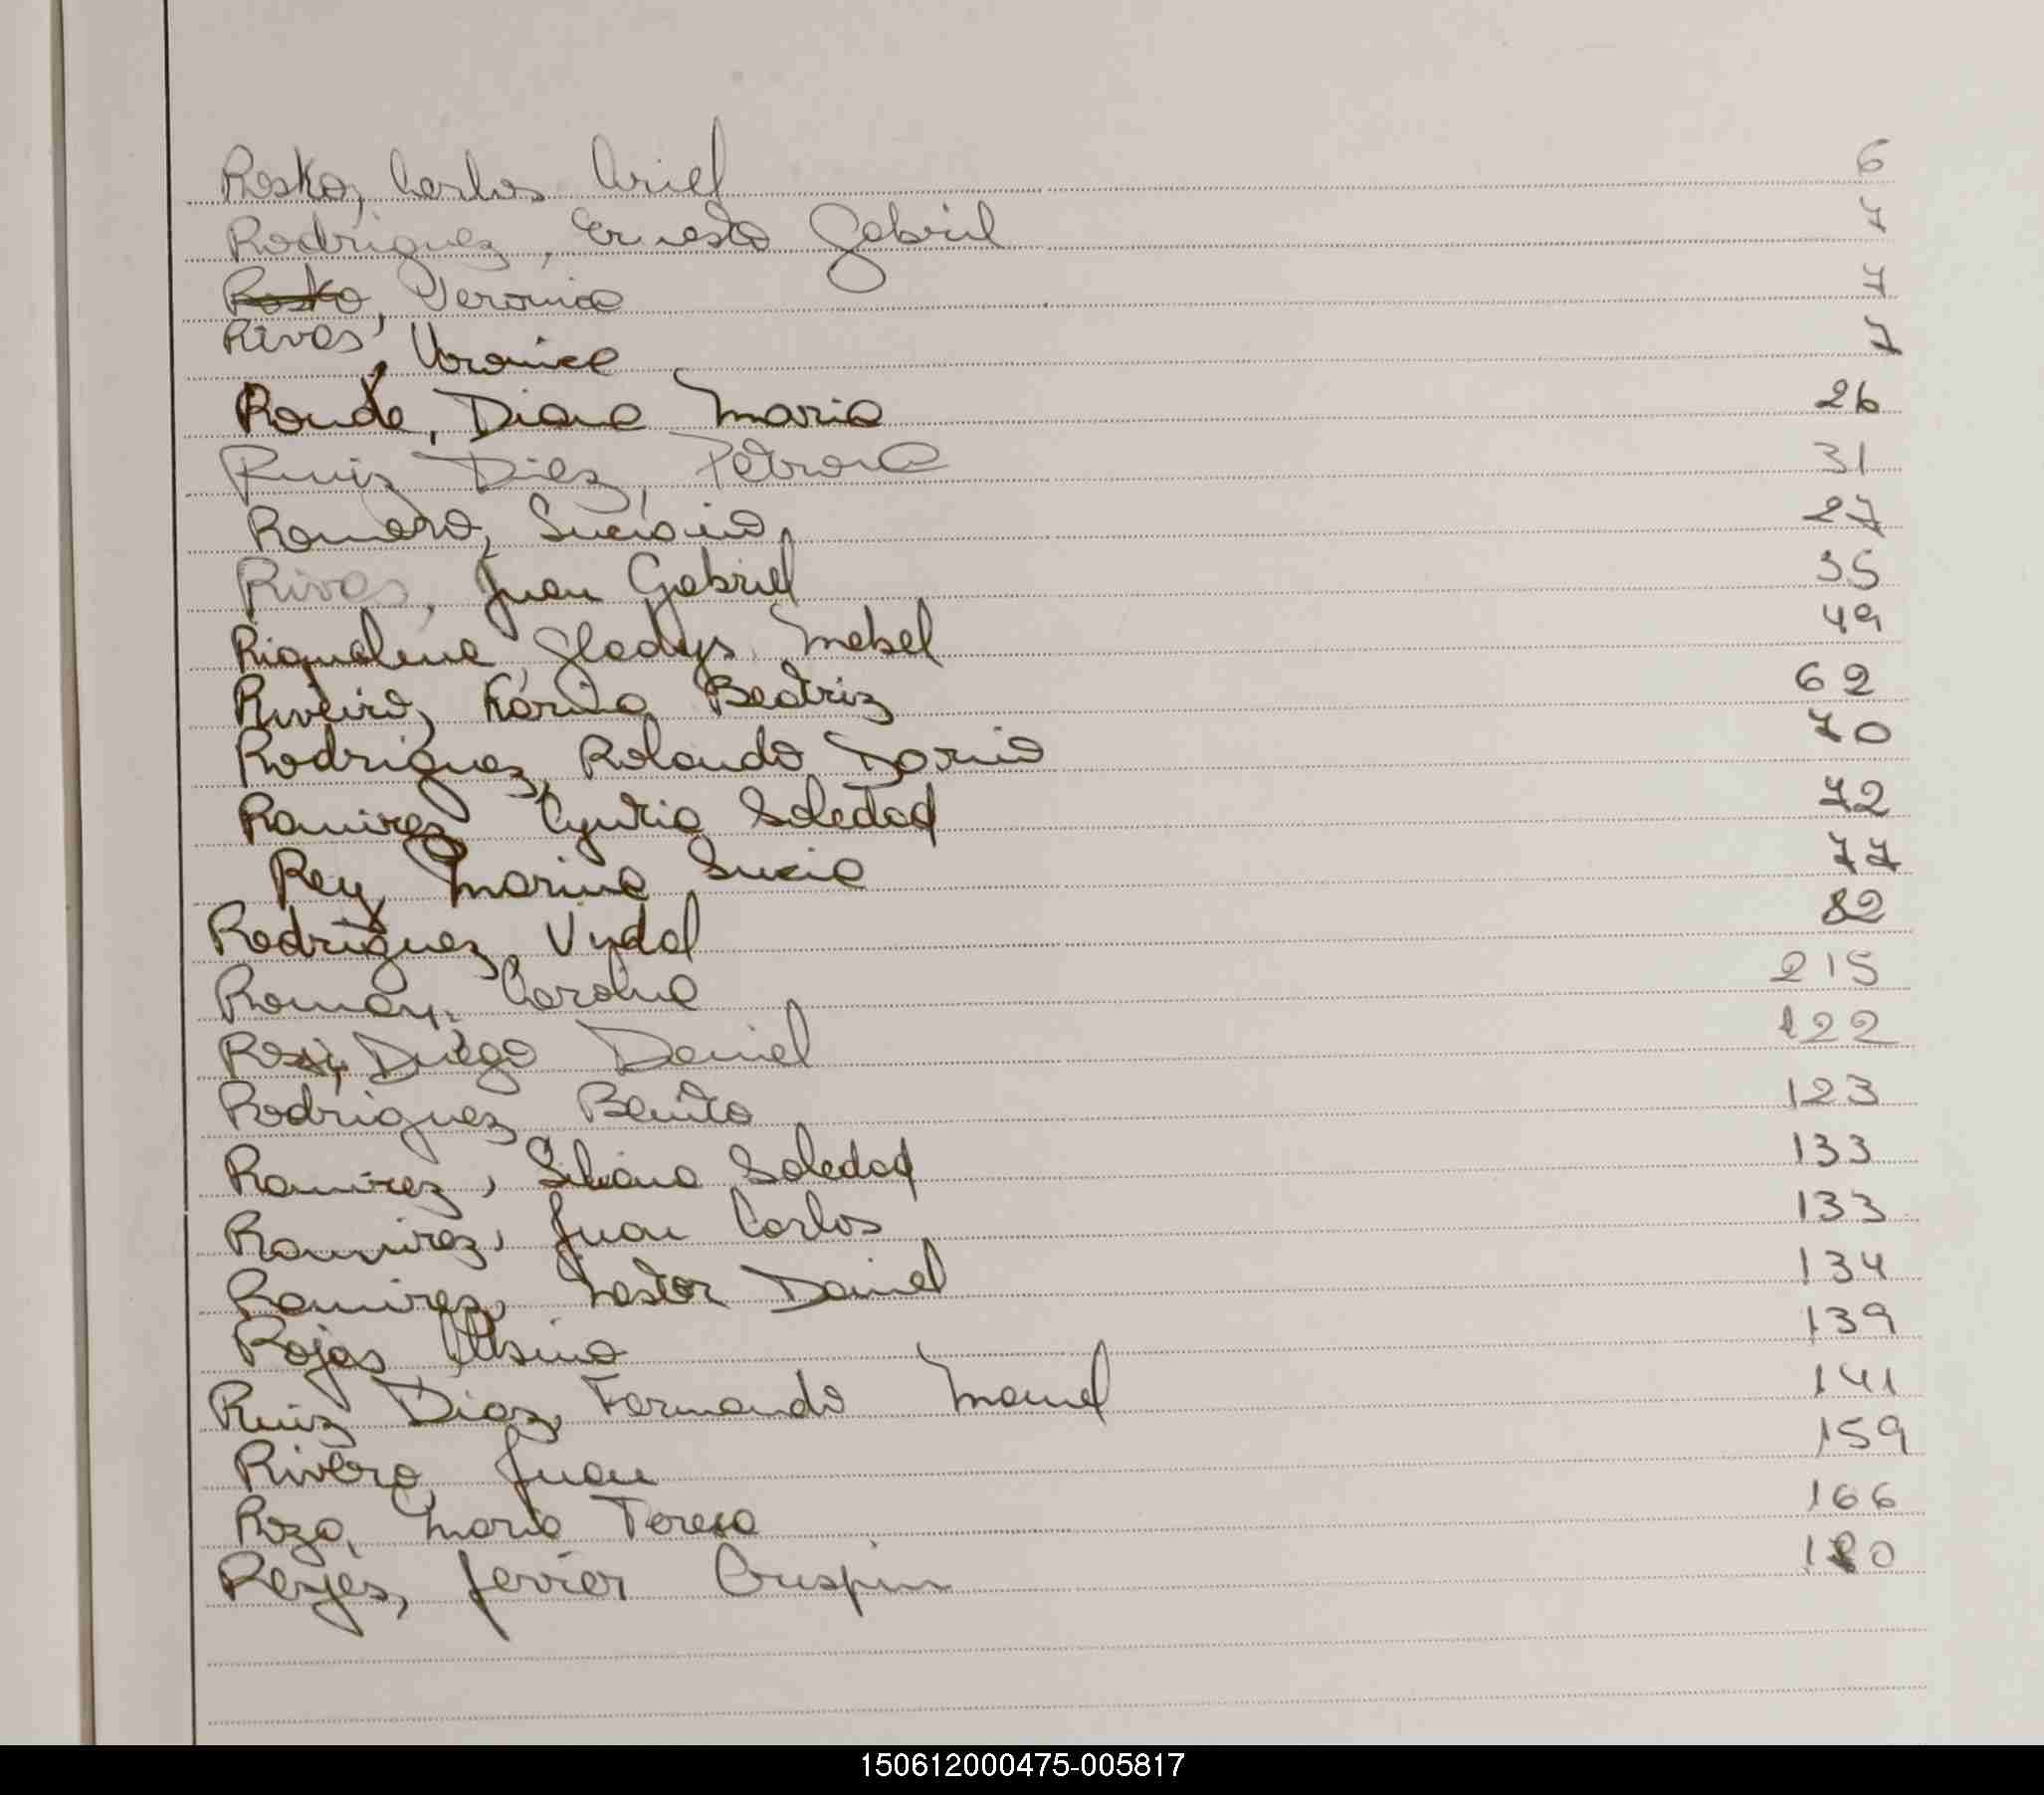 Rosko, Carlos Ariel 6
Rodriguez, Ernesto Gabriel 7
Rosko, Veronica 7
Rivas, Veronica 7
Diana Maria 26
Ruiz Diez, Petrona 31
Romero, Luciano 27
Rivas, Juan Gabriel 35
Riquelme, Gladys Mabel 49
Riveiro, Karina Beatriz 62
Rodriguez, Rolando Dario 70
Ramirez Cyntia Soledad 72
Rey, Marina Lucia 77
Rodriguez, Vidal 82
Roman, Carolina 215
Diego Daniel 122
Rodriguez, Benito 123
Ramirez, Silvana Soledad 133
Ramirez, Juan Carlos 133
Ramirez, Nestor Daniel 134
Rojas, Albino 139
Ruiz Diaz, Fernando Manuel 141
Rivero, Juan 159
Roza, Maria Teresa 166
Reyes, Javier Crispin 180
150612000475-005817